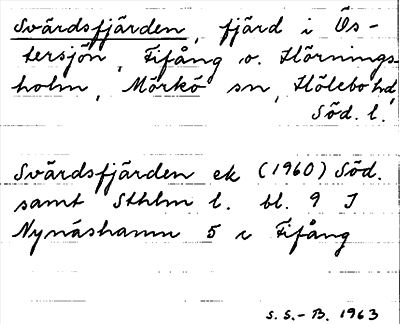 Svärdsfjärden, fjärd i Ös-
tersjön, Fifång o. Hörnings-
holm, Mörkö sn, Hölebo hd,
Söd. l.
Svärdsfjärden ek (1960) Söd.
samt Sthlm l. bl. 9 I
Nynäshamn 5 c Fifång
S.S.-B. 1963